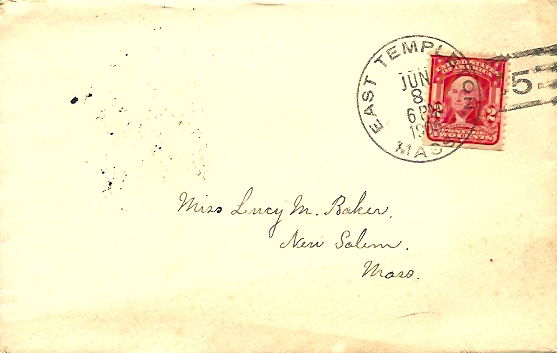 EAST TEMPLETON
MASS
JUN
8
6 PM
5
UNITED STATES
OF AMERICA
2 2
POSTAGE
TWO CENTS
Miss Lucy M. Baker.
New Salem.
Mass.